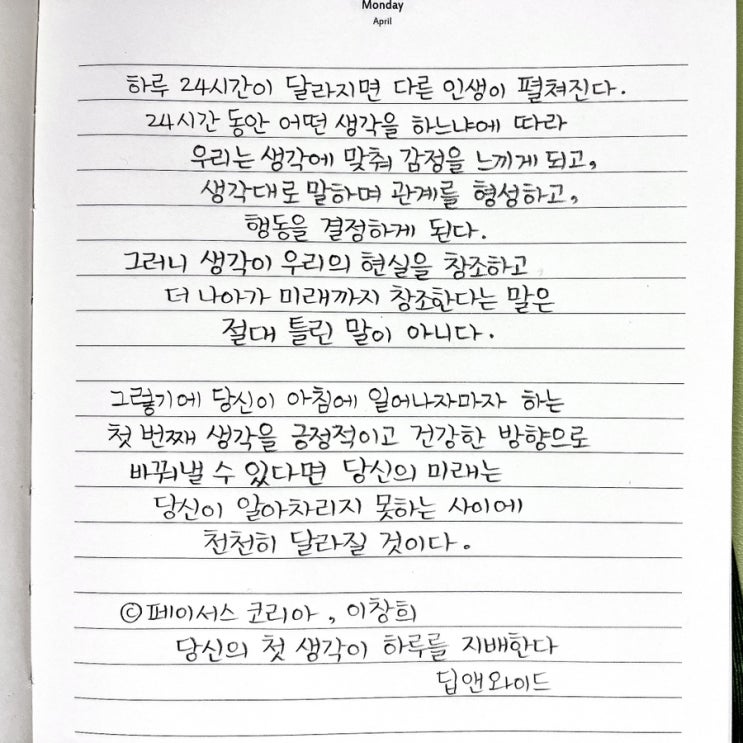 Monday
April
하루 24시간이 달라지면 다른 인생이 펼쳐진다.
24시간 동안 어떤 생각을 하느냐에 따라
우리는 생각에 맞춰 감정을 느끼게 되고,
생각대로 말하며 관계를 형성하고,
행동을 결정하게 된다.
그러니 생각이 우리의 현실을 창조하고
더 나아가 미래까지 창조한다는 말은
절대 틀린 말이 아니다.
그렇기에 당신이 아침에 일어나자마자 하는
첫 번째 생각을 긍정적이고 건강한 방향으로
바꿔낼 수 있다면 당신의 미래는
당신이 알아차리지 못하는 사이에
천천히 달라질 것이다.
ⓒ페이서스 코리아, 이창희
당신의 첫 생각이 하루를 지배한다
딥앤와이드